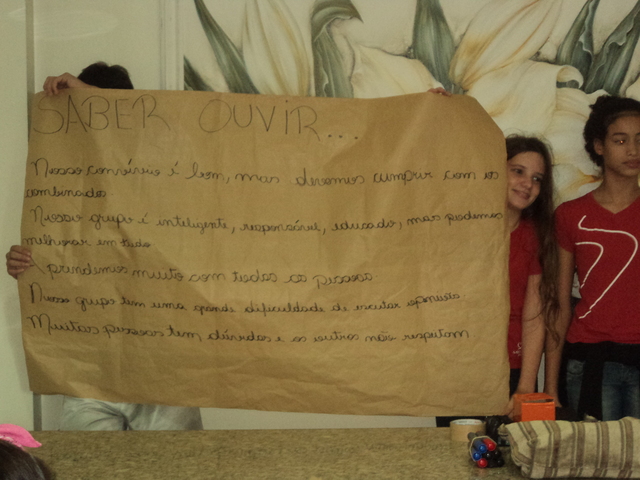 SABER OUVIR...
Nosso convívio é bom, mas devemos cumprir com os
combinados.
Nosso grupo é inteligente, responsável, educado, mas podemos
melhorar em tudo
Aprendemos muito com todas as pessoas
Nosso grupo tem uma grande dificuldade de escutar
Muitas pessoas tem dúvidas e as outras não respeitam